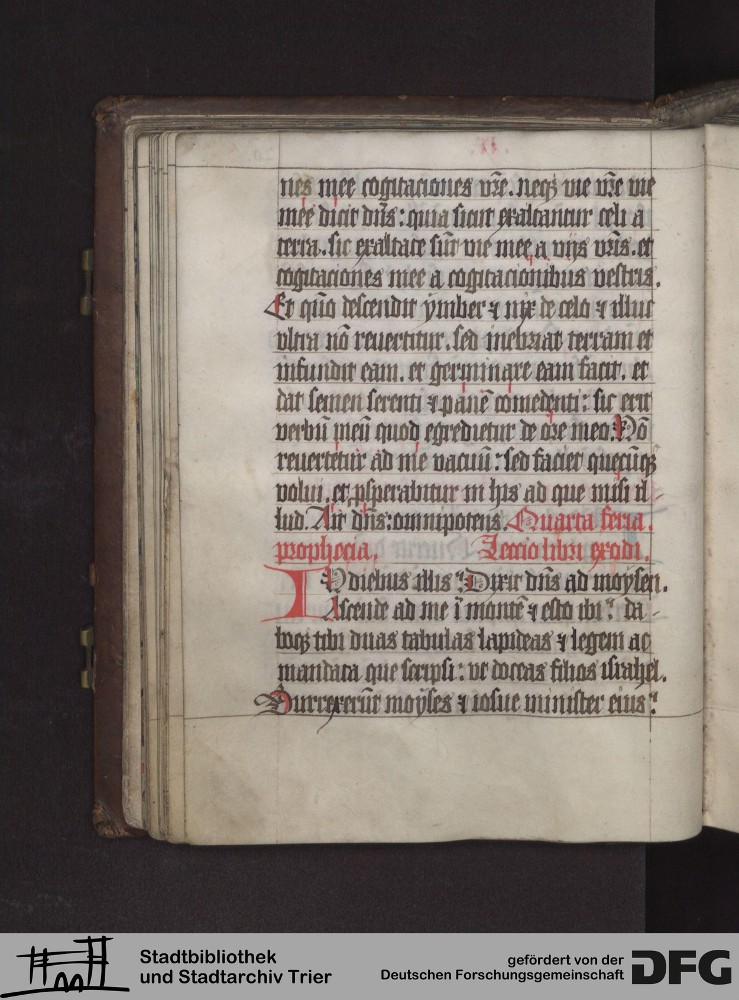 .IX.
nes mee cogitaciones vr̄e. neq₃ vie vr̄e vie
mee dicit dn̄s: quia sicut exaltantur celi a
terra. sic exaltate sūt vie mee a vijs vr̄is. et
cogitaciones mee a cogitacionibus vestris.
Et quō descendit ymber ⁊ nix de celo ⁊ illuc
vltra nō reuertitur. sed inebriat terram et
infundit eam. et germinare eam facit. et
dat semen serenti ⁊ panē comedenti: sic erit
verbū meū quod egredietur de ore meo. Nō
reuertetur ad me vacuū: sed faciet quecūq₃
volui. et ꝓsperabitur in his ad que misi il-
lud. Ait dn̄s: omnipotens. Quarta feria.
prophecia. Leccio libri exodi.
IN diebus illis: Dixit dn̄s ad moysen.
Ascende ad me ī montē ⁊ esto ibi: da-
boq₃ tibi duas tabulas lapideas ⁊ legem ac
mandata que scripsi: vt doceas filios israhel.
Surrexerūt moyses ⁊ iosue minister eius:
Stadtbibliothek
und Stadtarchiv Trier
gefördert von der
Deutschen Forschungsgemeinschaft DFG